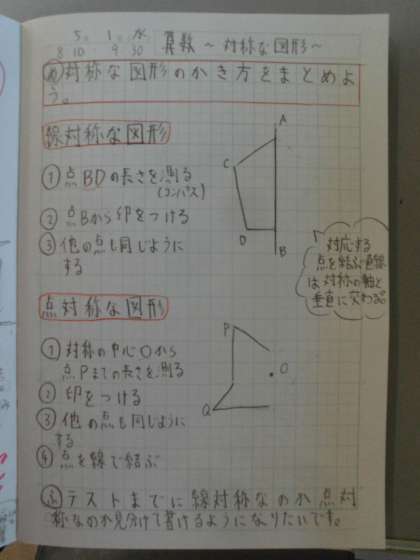 5. 1. 水
8 10 9 30 算数 〜対称な図形〜
め 対称な図形のかき方をまとめよ
う。
線対称な図形
① 点BDの長さを測る
(コンパス)
② 点Bから印をつける
③ 他の点も同じように
する
A
C
D
B
対応する
点を結ぶ直線
は対称の軸と
垂直に交わる。
点対称な図形
① 対称の中心Oから
点Pまでの長さを測る
② 印をつける
③ 他の点も同じように
する
④ 点を線で結ぶ
P
O
Q
ふ テストまでに線対称なのか点対
称なのか見分けて書けるようになりたいです。